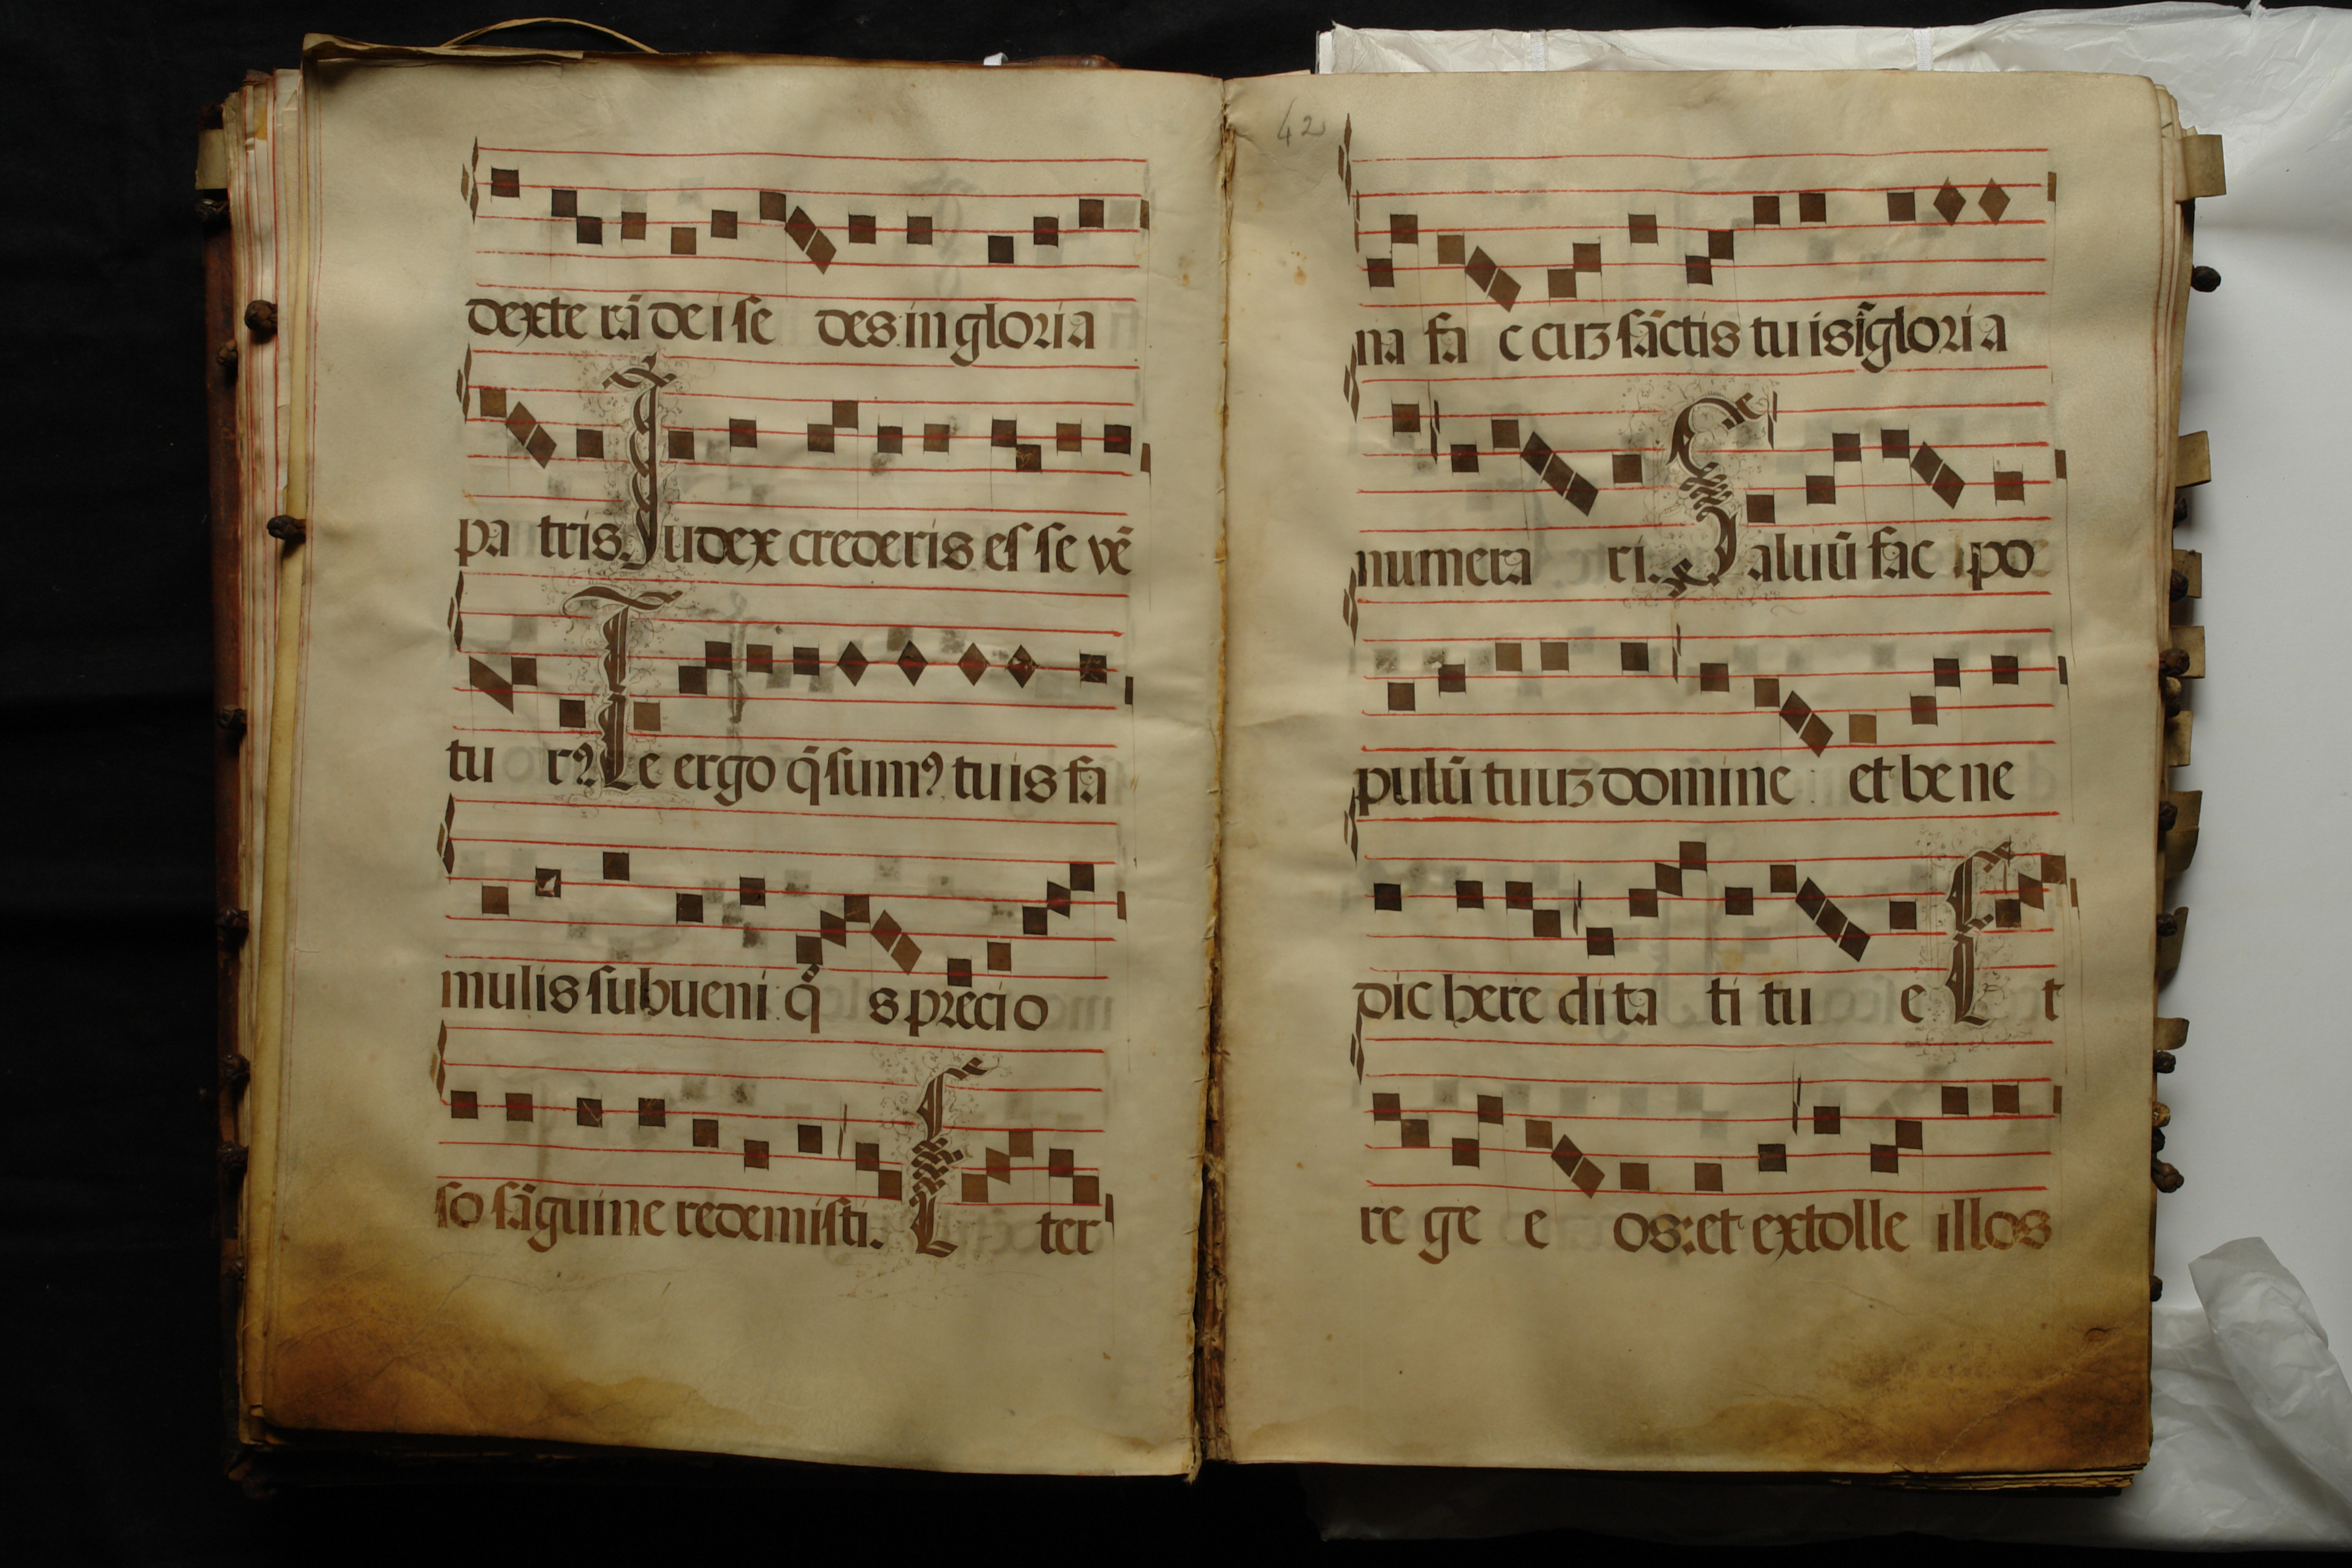 dexte rā de i se des in gloria
pa tris. Judex crederis es se vē
tu rꝰ Te ergo q̄sumꝰ tuis fa
mulis subueni q̄ s precio
so sāguine redemisti. E ter
42
na fa c cuꝫ sāctis tu is ī gloria
numera ri. Saluū fac po
pulū tuuꝫ domine et be ne
dic here di ta ti tu e E t
re ge e os: et extolle illos